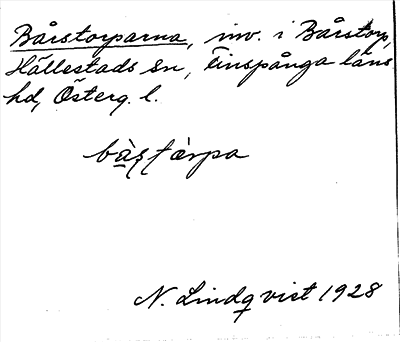 Bårstorparna, inv. i Bårstorp,
Hällestads sn, Finspånga läns
hd, Österg. l.
bàʂtàrpa
N. Lindqvist 1928